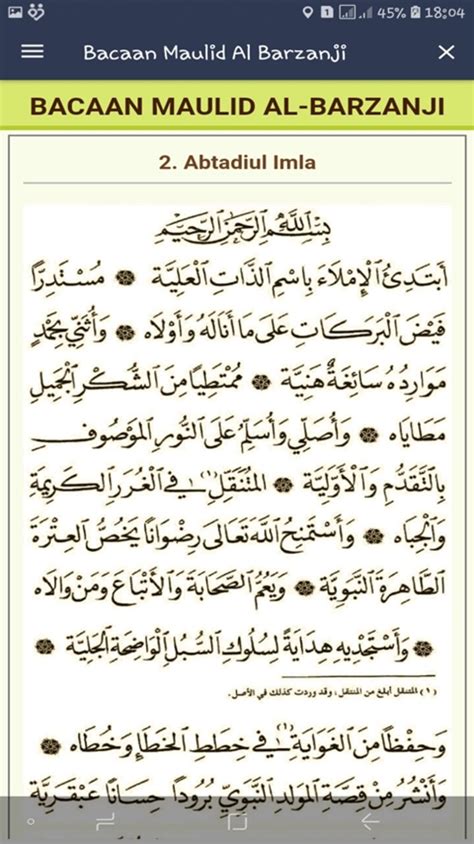 45% 18:04
Bacaan Maulid Al Barzanji
BACAAN MAULID AL-BARZANJI
2. Abtadiul Imla
بِسْمِ اللَّهِ الرَّحْمَنِ الرَّحِيمِ
أَبْتَدِئُ الْإِمْلَاءَ بِاسْمِ الذَّاتِ الْعَلِيَّةِ ۞ مُسْتَدِرًّا
فَيْضَ الْبَرَكَاتِ عَلَى مَا أَنَالَهُ وَأَوْلَاهُ ۞ وَأُثَنِّي بِحَمْدٍ
مَوَارِدُهُ سَائِغَةٌ هَنِيَّةٌ ۞ مُمْتَطِيًا مِنَ الشُّكْرِ الْجَمِيلِ
مَطَايَاهُ ۞ وَأُصَلِّي وَأُسَلِّمُ عَلَى النُّورِ الْمَوْصُوفِ
بِالتَّقَدُّمِ وَالْأَوَّلِيَّةِ ۞ الْمُتَنَقِّلِ (١) فِي الْغُرَرِ الْكَرِيمَةِ
وَالْجِبَاهِ ۞ وَأَسْتَمْنِحُ اللَّهَ تَعَالَى رِضْوَانًا يَخُصُّ الْعِتْرَةَ
الطَّاهِرَةَ النَّبَوِيَّةَ ۞ وَيَعُمُّ الصَّحَابَةَ وَالْأَتْبَاعَ وَمَنْ وَالَاهُ
۞ وَأَسْتَجْدِيهِ هِدَايَةً لِسُلُوكِ السُّبُلِ الْوَاضِحَةِ الْجَلِيَّةِ ۞
(١) المتنقل أبلغ من المنتقل، وقد وردت كذلك في الأصل.
وَحِفْظًا مِنَ الْغَوَايَةِ (١) فِي خِطَطِ الْخَطَإِ وَخُطَاهُ ۞
وَأَنْشُرُ مِنْ قِصَّةِ الْمَوْلِدِ النَّبَوِيِّ بُرُودًا حِسَانًا عَبْقَرِيَّةً